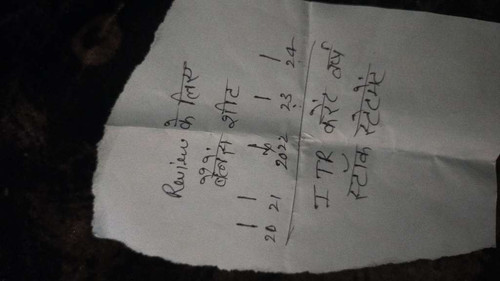 Review के लिए
बैलेंस शीट
20 21 2022 23 24
ITR करेंट वर्ष
स्टॉक स्टेटमेंट